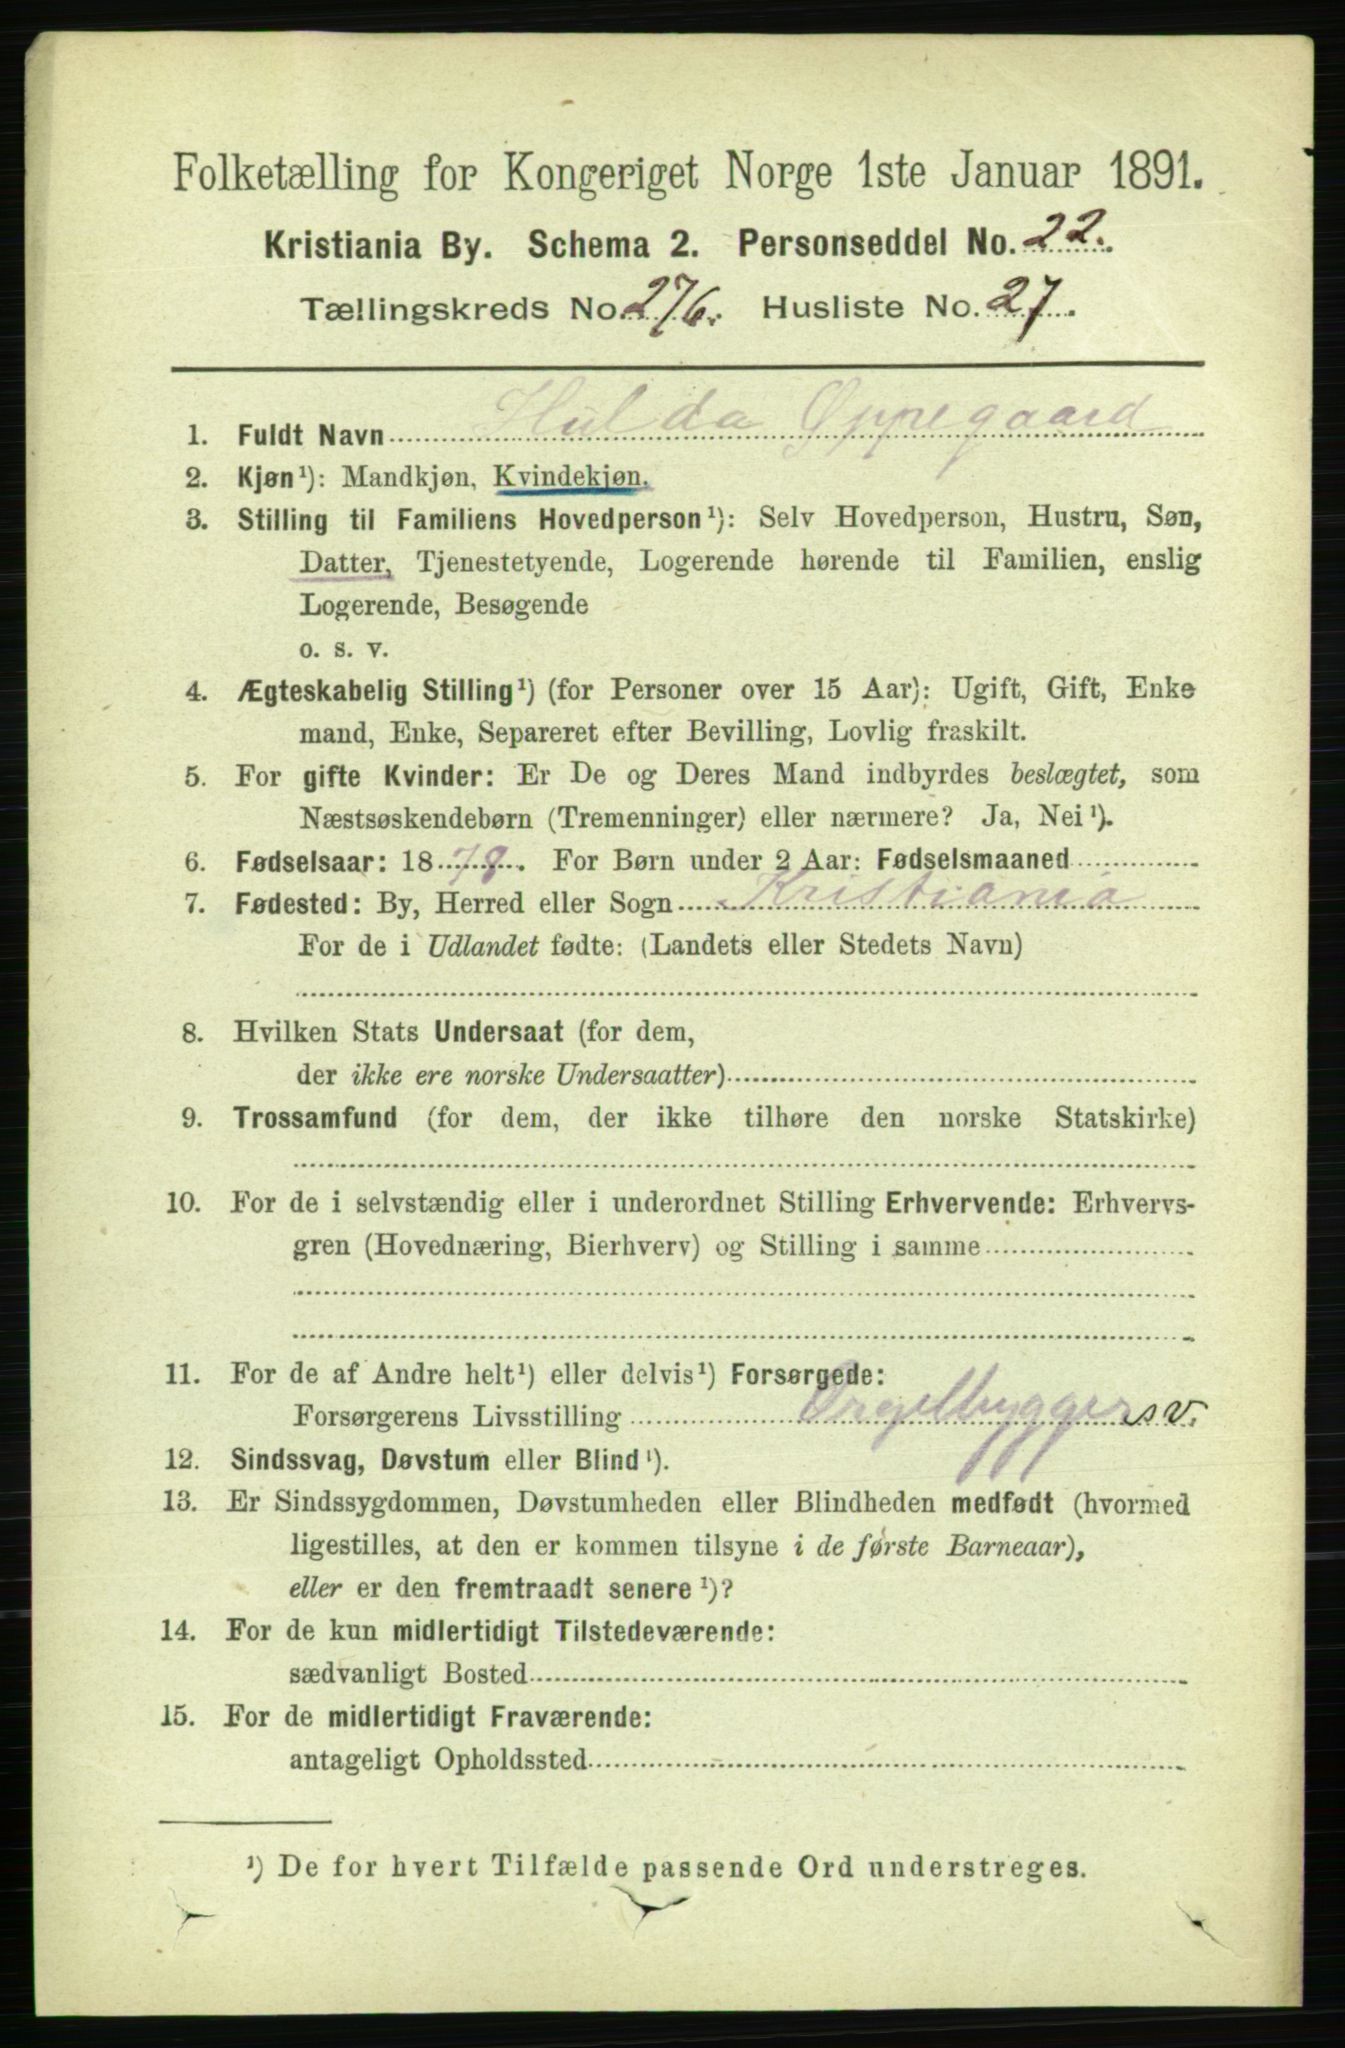 Folketælling for Kongeriget Norge 1ste Januar 1891.
Kristiania By. Schema 2. Personseddel No. 22.
Tællingskreds No. 276. Husliste No. 27.
1. Fuldt Navn Hulda Oppegaard
2. Kjøn¹): Mandkjøn, Kvindekjøn.
3. Stilling til Familiens Hovedperson¹): Selv Hovedperson, Hustru, Søn,
Datter, Tjenestetyende, Logerende hørende til Familien, enslig
Logerende, Besøgende
o. s. v.
4. Ægteskabelig Stilling¹) (for Personer over 15 Aar): Ugift, Gift, Enke
mand, Enke, Separeret efter Bevilling, Lovlig fraskilt.
5. For gifte Kvinder: Er De og Deres Mand indbyrdes beslægtet, som
Næstsøskendebørn (Tremenninger) eller nærmere? Ja, Nei¹).
6. Fødselsaar: 18 79. For Børn under 2 Aar: Fødselsmaaned
7. Fødested: By, Herred eller Sogn Kristiania
For de i Udlandet fødte: (Landets eller Stedets Navn)
8. Hvilken Stats Undersaat (for dem,
der ikke ere norske Undersaatter)
9. Trossamfund (for dem, der ikke tilhøre den norske Statskirke)
10. For de i selvstændig eller i underordnet Stilling Erhvervende: Erhvervs-
gren (Hovednæring, Bierhverv) og Stilling i samme
11. For de af Andre helt¹) eller delvis¹) Forsørgede:
Forsørgerens Livsstilling Orgelbygger sv.
12. Sindssvag, Døvstum eller Blind¹).
13. Er Sindssygdommen, Døvstumheden eller Blindheden medfødt (hvormed
ligestilles, at den er kommen tilsyne i de første Barneaar),
eller er den fremtraadt senere¹)?
14. For de kun midlertidigt Tilstedeværende:
sædvanligt Bosted
15. For de midlertidigt Fraværende:
antageligt Opholdssted
¹) De for hvert Tilfælde passende Ord understreges.